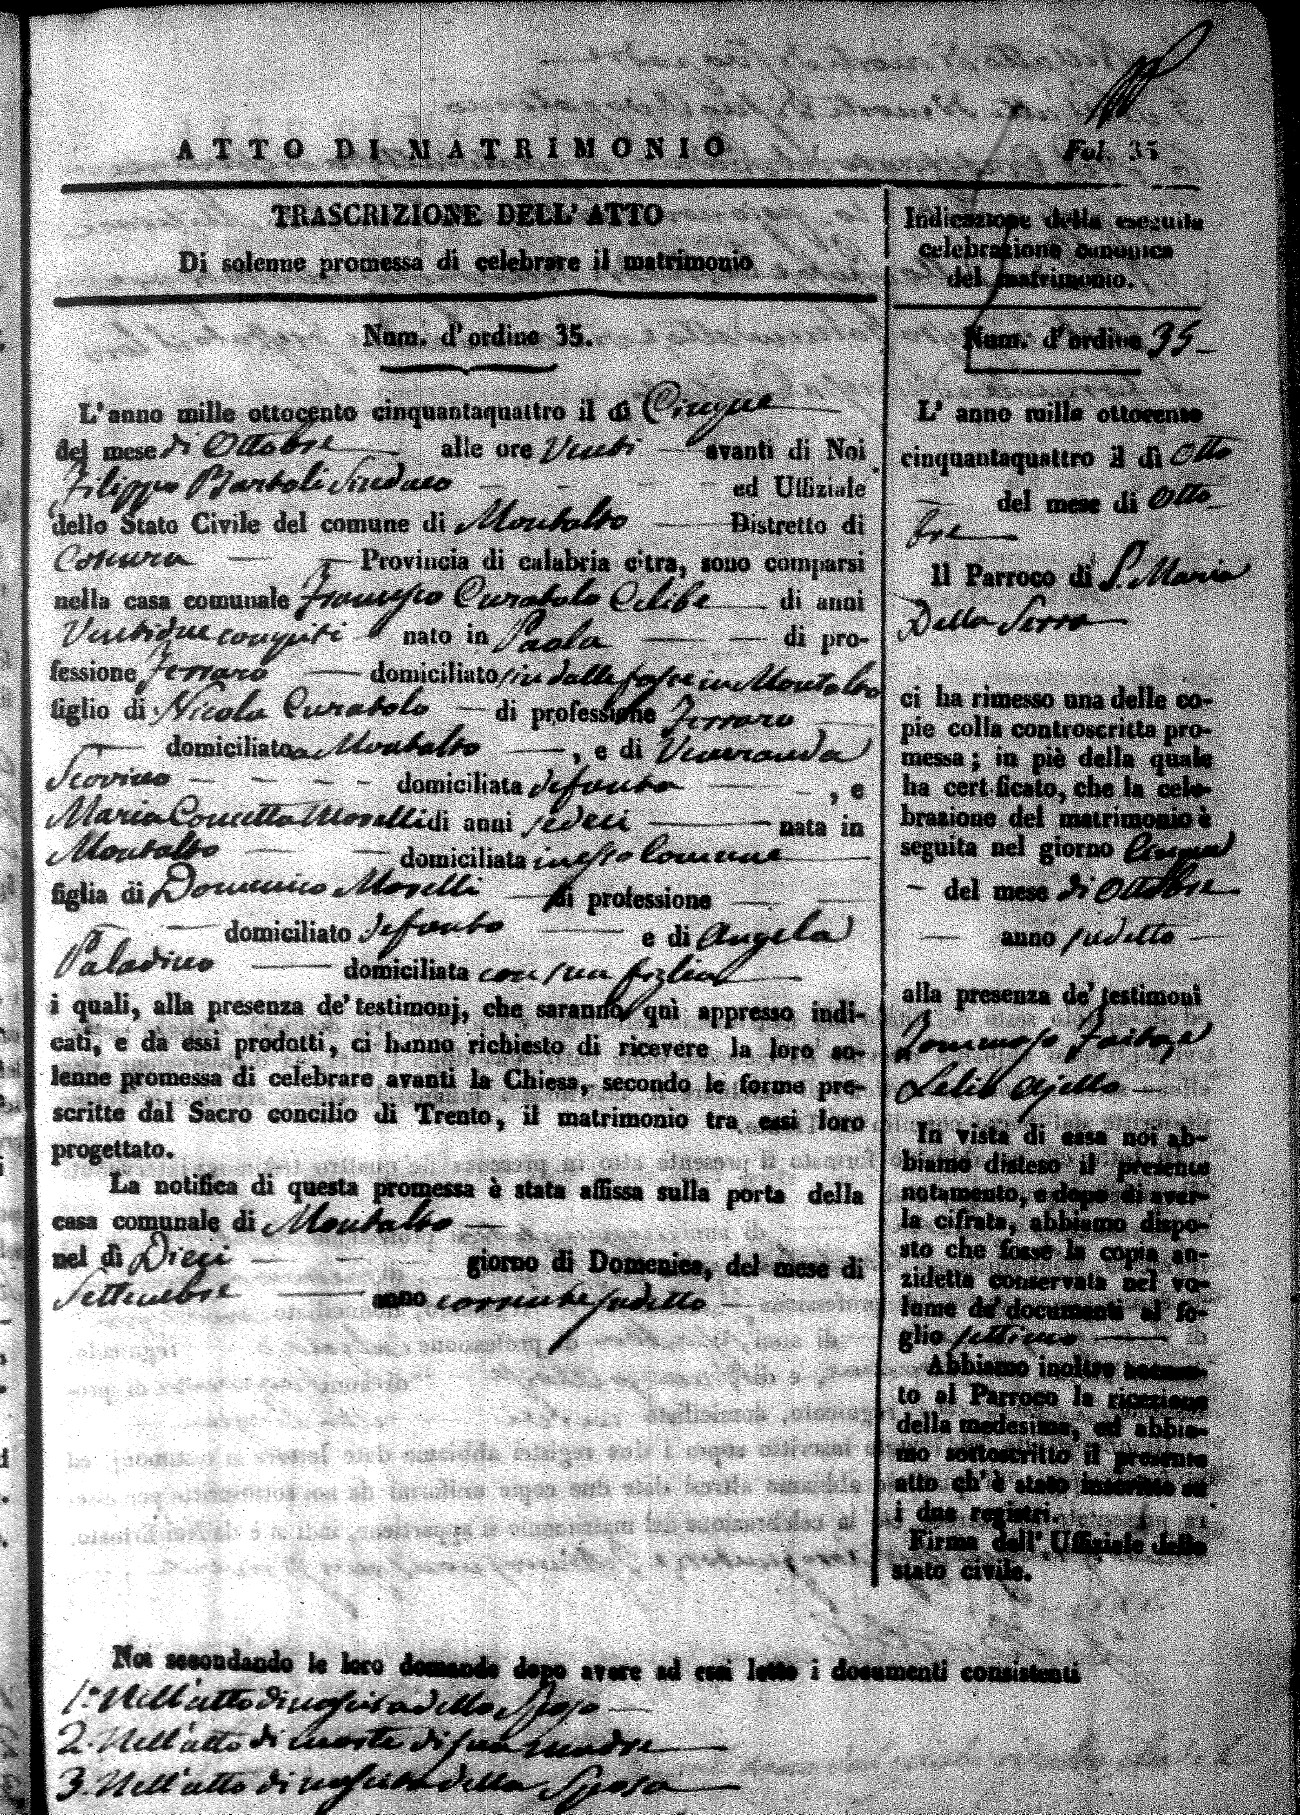 ATTO DI MATRIMONIO
Fol. 35
TRASCRIZIONE DELL' ATTO
Di solenne promessa di celebrare il matrimonio
Num. d'ordine 35.
L'anno mille ottocento cinquantaquattro il dì Cinque
del mese di Ottobre alle ore Venti avanti di Noi
Filippo Bartoli Sindaco ed Uffiziale
dello Stato Civile del comune di Montalto Distretto di
Cosenza Provincia di calabria citra, sono comparsi
nella casa comunale Francesco Curatolo Celibe di anni
Ventidue compiti nato in Paola di pro-
fessione Ferraro domiciliato sin dalle fasce in Montalto
figlio di Nicola Curatolo di professione Ferraro
domiciliato a Montalto, e di Veneranda
Scovino domiciliata defunta, e
Maria Concetta Morelli di anni sedeci nata in
Montalto domiciliata in esso Comune
figlia di Domenico Morelli di professione
domiciliato defunto e di Angela
Paladino domiciliata con sua figlia
i quali, alla presenza de' testimonj, che saranno quì appresso indi-
cati, e da essi prodotti, ci hanno richiesto di ricevere la loro so-
lenne promessa di celebrare avanti la Chiesa, secondo le forme pre-
scritte dal Sacro concilio di Trento, il matrimonio tra essi loro
progettato.
La notifica di questa promessa è stata affissa sulla porta della
casa comunale di Montalto
nel dì Dieci giorno di Domenica, del mese di
Settembre anno corrente sudetto
Indicazione della eseguita
celebrazione canonica
del matrimonio.
Num. d'ordine 35
L' anno mille ottocento
cinquantaquattro il dì Otto
del mese di Otto
bre
Il Parroco di S. Maria
Della Serra
ci ha rimesso una delle co-
pie colla controscritta pro-
messa; in piè della quale
ha certificato, che la cele-
brazione del matrimonio è
seguita nel giorno Cinque
del mese di Ottobre
anno sudetto
alla presenza de' testimoni
Tommaso
Lelio Ajello
In vista di essa noi ab-
biamo disteso il presente
notamento, e dopo di aver-
la cifrata, abbiamo dispo-
sto che fosse la copia an-
zidetta conservata nel vo-
lume de' documenti al fo-
glio settimo
Abbiamo inoltre accusa-
to al Parroco la ricezione
della medesima, ed abbia-
mo sottoscritto il presente
atto ch'è stato inscritto su
i due registri.
Firma dell' Uffiziale dello
stato civile.
Noi secondando le loro domande dopo avere ad essi letto i documenti consistenti
1.° Nell'atto di nascita dello Sposo
2. Nell'atto di morte di sua madre
3. Nell'atto di nascita della Sposa